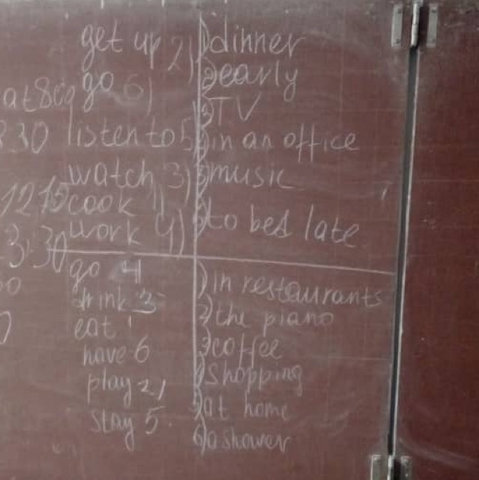 get up 2) 1) dinner
go 6) 2) early
at 8
30 listen to 5) 3) TV
4) in an office
watch 3) 5) music
1215 cook 1)
work 4) 6) to bed late
3:30
go 4 1) in restaurants
drink 3 2) the piano
eat 1 3) coffee
have 6 4) shopping
play 2) 5) at home
stay 5. 6) a shower